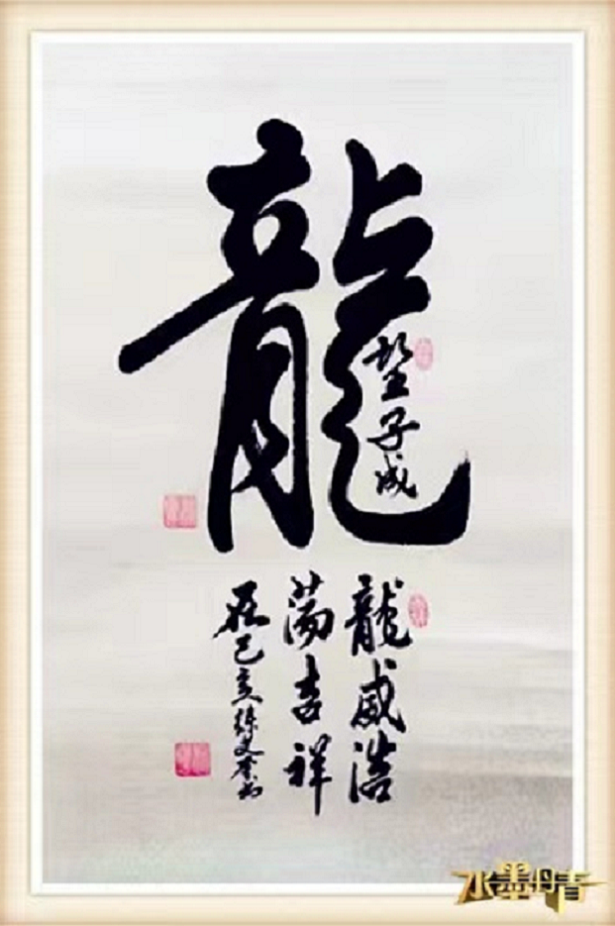 龍
望子成
龍威浩
蕩吉祥
己亥
水墨丹青